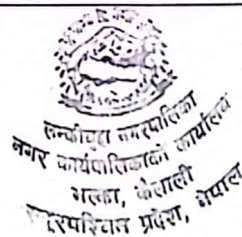 लम्कीचुहा नगरपालिका
नगर कार्यपालिकाको कार्यालय
बल्का, कैलाली
सुदूरपश्चिम प्रदेश, नेपाल